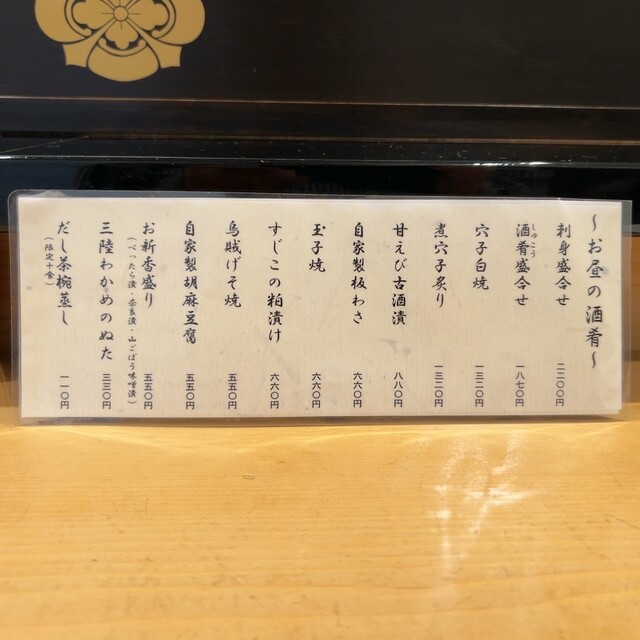 ～お昼の酒肴～
刺身盛合せ 二二〇〇円
酒肴盛合せ 一八七〇円
しゅこう
穴子白焼 一三二〇円
煮穴子炙り 一三二〇円
甘えび古酒漬 八八〇円
自家製板わさ 六六〇円
玉子焼 六六〇円
すじこの粕漬け 六六〇円
烏賊げそ焼 五五〇円
自家製胡麻豆腐 五五〇円
お新香盛り 五五〇円
（べったら漬・奈良漬・山ごぼう味噌漬）
三陸わかめのぬた 三三〇円
だし茶椀蒸し 一一〇円
（限定十食）